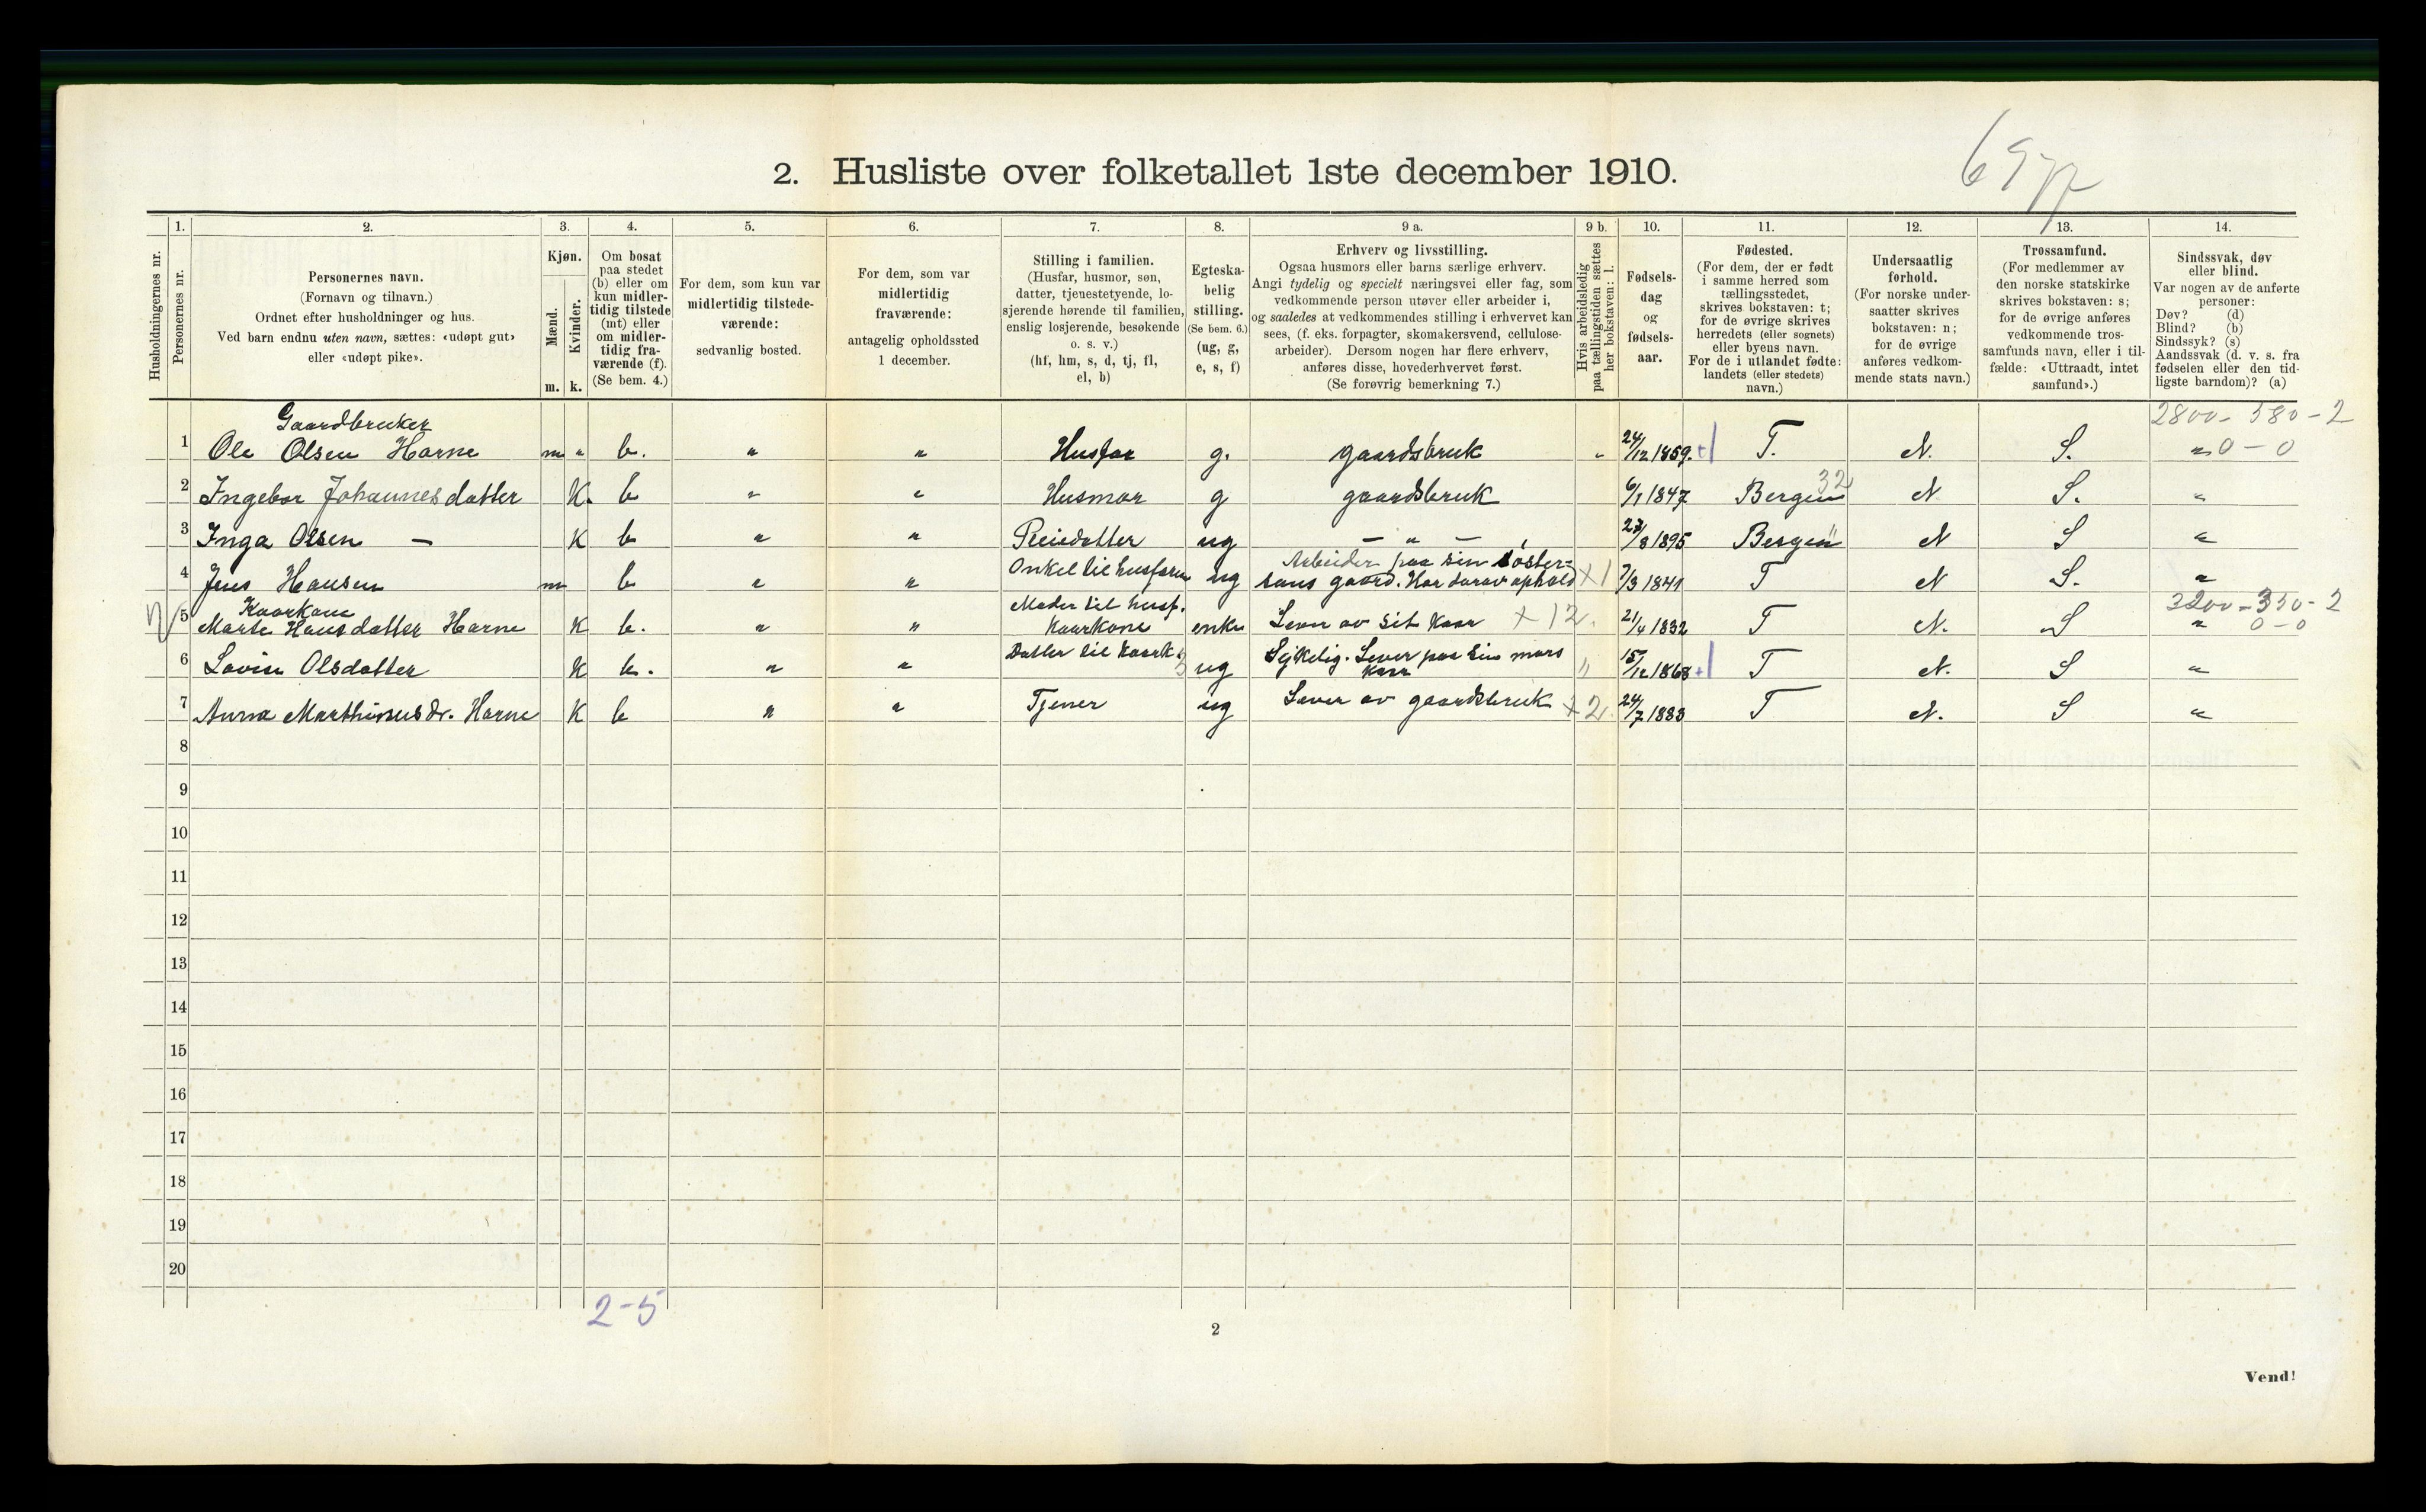 2. Husliste over folketallet 1ste december 1910.
1. 2. 3. 4. 5. 6. 7. 8. 9 a. 9 b. 10. 11. 12. 13. 14.
Husholdningernes nr.
Personernes nr.
Personernes navn.
(Fornavn og tilnavn.)
Ordnet efter husholdninger og hus.
Ved barn endnu uten navn, sættes: «udøpt gut»
eller «udøpt pike».
Kjøn.
Mænd.
Kvinder.
m. k.
Om bosat
paa stedet
(b) eller om
kun midler-
tidig tilstede
(mt) eller
om midler-
tidig fra-
værende (f).
(Se bem. 4.)
For dem, som kun var
midlertidig tilstede-
værende:
sedvanlig bosted.
For dem, som var
midlertidig
fraværende:
antagelig opholdssted
1 december.
Stilling i familien.
(Husfar, husmor, søn,
datter, tjenestetyende, lo-
sjerende hørende til familien,
enslig losjerende, besøkende
o. s. v.)
(hf, hm, s, d, tj, fl,
el, b)
Egteska-
belig
stilling.
(Se bem. 6.)
(ug, g,
e, s, f)
Erhverv og livsstilling.
Ogsaa husmors eller barns særlige erhverv.
Angi tydelig og specielt næringsvei eller fag, som
vedkommende person utøver eller arbeider i,
og saaledes at vedkommendes stilling i erhvervet kan
sees, (f. eks. forpagter, skomakersvend, cellulose-
arbeider). Dersom nogen har flere erhverv,
anføres disse, hovederhvervet først.
(Se forøvrig bemerkning 7.)
Hvis arbeidsledig
paa tællingstiden sættes
her bokstaven: l.
Fødsels-
dag
og
fødsels-
aar.
Fødested.
(For dem, der er født
i samme herred som
tællingsstedet,
skrives bokstaven: t;
for de øvrige skrives
herredets (eller sognets)
eller byens navn.
For de i utlandet fødte:
landets (eller stedets)
navn.)
Undersaatlig
forhold.
(For norske under-
saatter skrives
bokstaven: n;
for de øvrige
anføres vedkom-
mende stats navn.)
Trossamfund.
(For medlemmer av
den norske statskirke
skrives bokstaven: s;
for de øvrige anføres
vedkommende tros-
samfunds navn, eller i til-
fælde: «Uttraadt, intet
samfund».)
Sindssvak, døv
eller blind.
Var nogen av de anførte
personer:
Døv? (d)
Blind? (b)
Sindssyk? (s)
Aandssvak (d. v. s. fra
fødselen eller den tid-
ligste barndom)? (a)
Gaardbruker 2800 - 580 - 2
1 Ole Olsen Harne m " b. " " Husfar g. gaardsbruk " 24/12 1859. T. N. S. " 0 - 0
2 Ingebor Johannesdatter K. b " " Husmor g gaardsbruk 6/1 1847 Bergen 32 N S. "
3 Inga Olsen — K b " " Pleiedatter ug — " — 27/8 1895 Bergen N S "
4 Jens Hansen m b " " Onkel til husfaren ug Arbeider paa sin søster-
søns gaard. Har derav ophold x1 7/3 1841 T N S. "
Kaarkone Moder til husf. 3200 - 350 - 2
5 Marte Hansdatter Harne K b. " " Kaarkone enke Lever av sit Kaar x 12. 21/4 1832 T N. S " 0 - 0
6 Lovise Olsdatter K b. " " Datter til Kaark. ug Sykelig. Lever paa sin mors
Kaar " 15/12 1868 T N. S "
7 Anna Marthinusdr. Harne K b " " Tjener ug Lever av gaardsbruk x 2 24/7 1883 T N. S "
8
9
10
11
12
13
14
15
16
17
18
19
20
2-5
2
Vend!